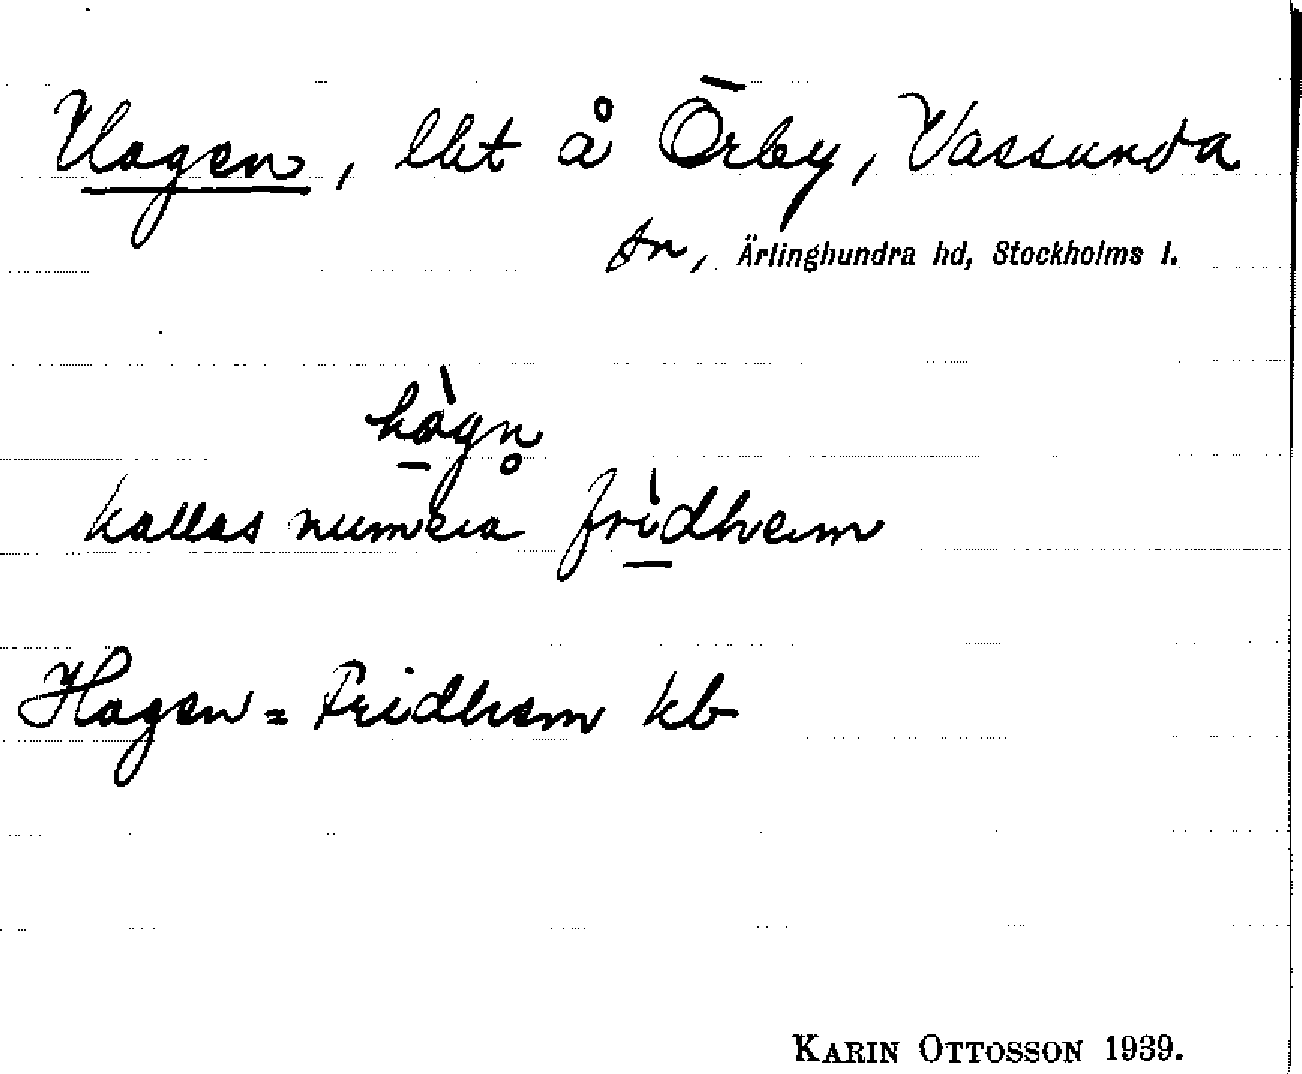 Hagen, lht å Örby, Vassunda
sn, Ärlinghundra hd, Stockholms l.
hàgn̥
kallas numera frìdhem
Hagen = Fridhem kb
KARIN OTTOSSON 1939.